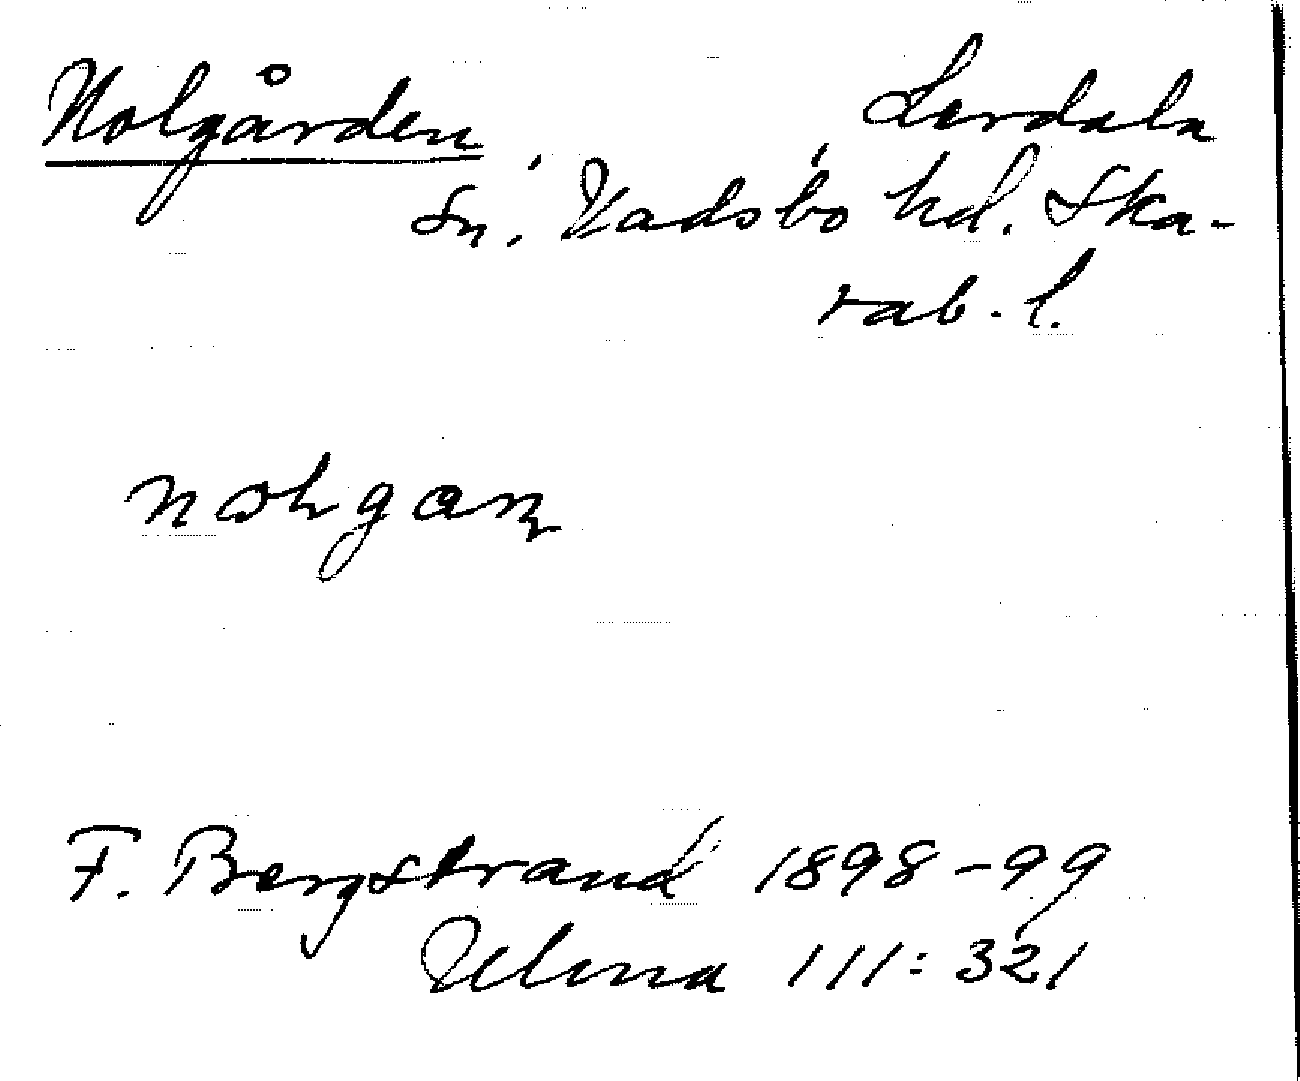 Nolgården Lerdala
sn, Vadsbo hd. Ska-
rab. l.
F. Bergstrand 1898-99
Ulma 111:321